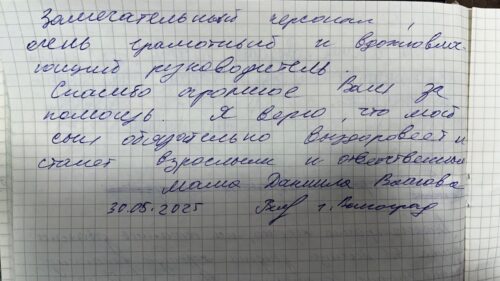 Замечательный персонал,
очень грамотный и вдохновля-
ющий руководитель.
Спасибо огромное Вам за
помощь. Я верю, что мой
сын обязательно выздоровеет и
станет взрослым и ответственным
Мама Даниила
30.05.2025 г. Волгоград